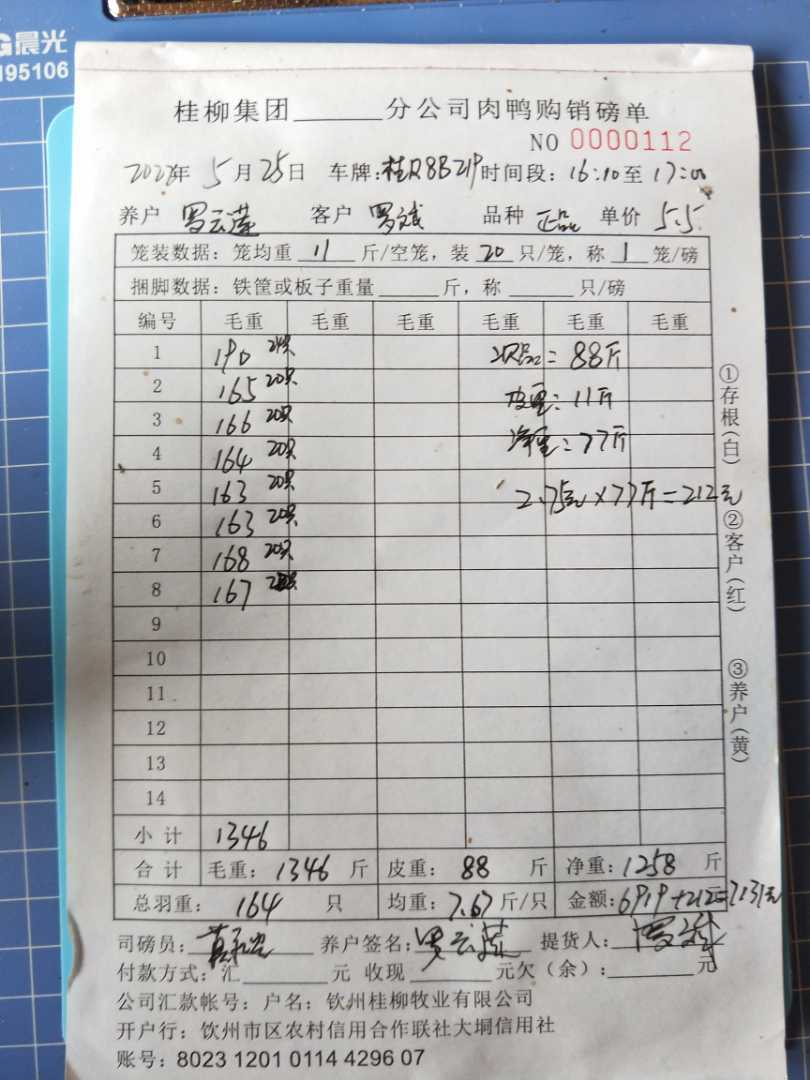 晨光
195106
桂柳集团______分公司肉鸭购销磅单
NO 0000112
2022年 5月25日 车牌:桂R8B219 时间段: 16:10至17:00
养户 罗云莲 客户 罗斌 品种 正品 单价 5.5
笼装数据: 笼均重 11 斤/空笼, 装 20 只/笼, 称 1 笼/磅
捆脚数据: 铁筐或板子重量______斤, 称______只/磅
编号 毛重 毛重 毛重 毛重 毛重 毛重
1 190 24只 次品:= 88斤
2 165 20只 皮重: 11斤
3 166 20只 净重: 77斤
4 164 20只
5 163 20只 2.75元×77斤=212元
6 163 20只
7 168 20只
8 167
9
10
11
12
13
14
小计 1346
合计 毛重: 1346 斤 皮重: 88 斤 净重: 1258 斤
总羽重: 164 只 均重: 7.67 斤/只 金额: 6919+212=7131元
司磅员: 养户签名: 罗云莲 提货人: 罗斌
付款方式: 汇______元 收现______元欠(余): ______元
公司汇款帐号: 户名: 钦州桂柳牧业有限公司
开户行: 钦州市区农村信用合作联社大垌信用社
账号: 8023 1201 0114 4296 07
①存根(白)
②客户(红)
③养户(黄)